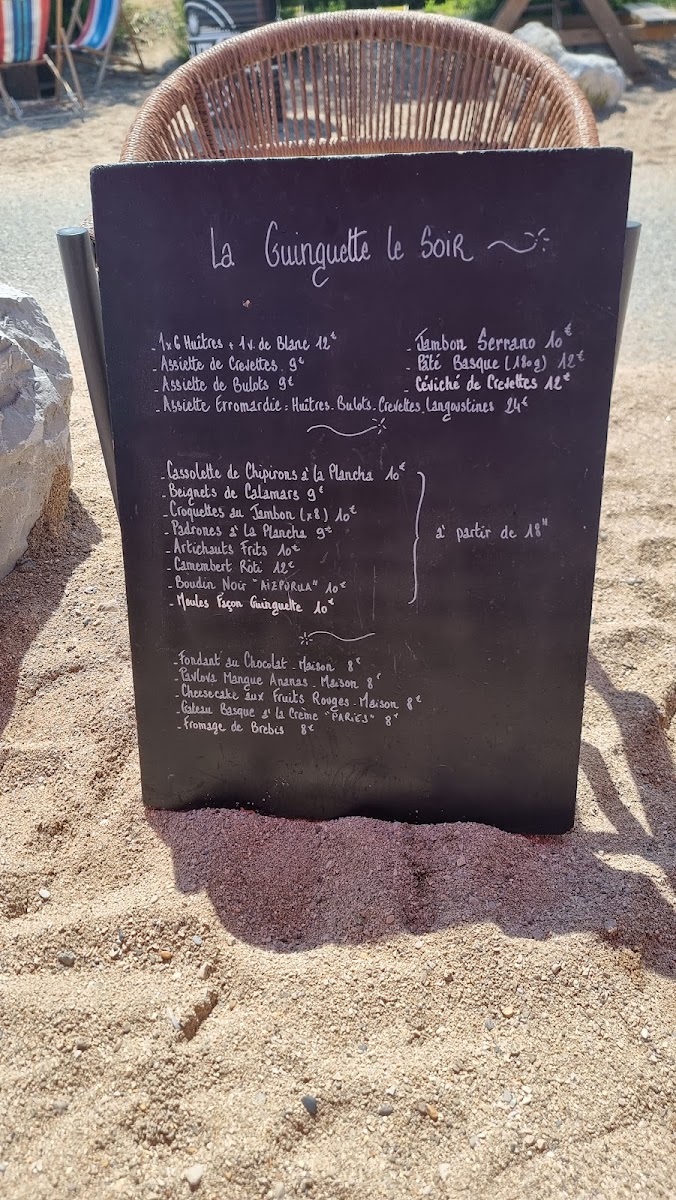 La Guinguette le Soir
- 1x6 Huîtres + 1 v. de Blanc 12€
- Assiette de Crevettes 9€
- Assiette de Bulots 9€
- Jambon Serrano 10€
- Pâté Basque (180g) 12€
- Céviché de Crevettes 12€
- Assiette Erromardie : Huîtres. Bulots. Crevettes. Langoustines 24€
- Cassolette de Chipirons à la Plancha 10€
- Beignets de Calamars 9€
- Croquettes au Jambon (x8) 10€
- Padrones à La Plancha 9€
- Artichauts Frits 10€
- Camembert Rôti 12€
- Boudin Noir "AIZPURUA" 10€
- Moules Façon Guinguette 10€
à partir de 18H
- Fondant au Chocolat. Maison 8€
- Pavlova Mangue Ananas. Maison 8€
- Cheesecake aux Fruits Rouges. Maison 8€
- Gâteau Basque à la Crème "PARIES" 8€
- Fromage de Brebis 8€